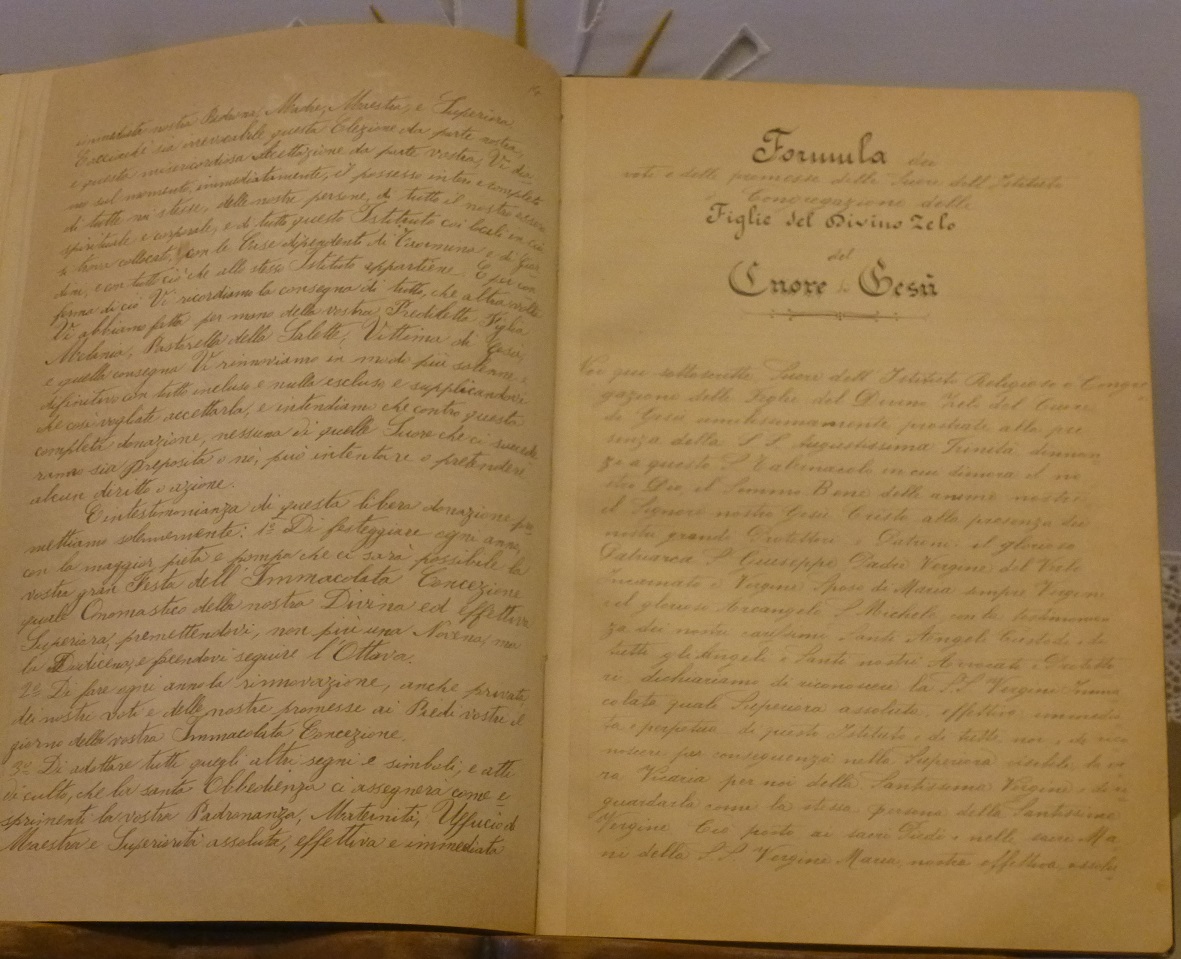 immediata nostra Padrona, Madre, Maestra, e Superiora.
E acciocchè sia irrevocabile questa Elezione da parte nostra,
e questa misericordiosa Accettazione da parte vostra, Vi dia-
mo sul momento, immediatamente, il possesso intero e completo
di tutte noi stesse, delle nostre persone, di tutto il nostro essere
spirituale e corporale, e di tutto questo Istituto coi locali in cui
si trova collocato, con le Case dipendenti di Taormina e di Giar-
dini, e con tutto ciò che allo stesso Istituto appartiene. E per con
ferma di ciò Vi ricordiamo la consegna di tutto, che altra volta
Vi abbiamo fatta per mano della vostra Prediletta Figlia
Melania, Pastorella della Salette, Vittima di Gesù,
e quella consegna Vi rinnoviamo in modo più solenne e
difinitivo con tutto incluso e nulla escluso e supplicandovi
che così vogliate accettarla, e intendiamo che contro questa
completa donazione, nessuna di quelle Suore che ci succede
ranno sia preposita o nò, può intentare o pretendere
alcun diritto o azione.
E in testimonianza di questa libera donazione pro
mettiamo solennemente: 1º Di festeggiare ogni anno,
con la maggior pietà e pompa che ci sarà possibile la
vostra gran Festa dell' Immacolata Concezione
quale Onomastico della nostra Divina ed effettiva
Superiora, premettendovi, non più una Novena, ma
la Dodicina, e facendovi seguire l'Ottava.
2º Di fare ogni anno la rinnovazione, anche privata
dei nostri voti e delle nostre promesse ai Piedi vostri il
giorno della vostra Immacolata Concezione.
3º Di adottare tutti quegli altri segni e simboli, e atti
di culto, che la santa Obbedienza ci assegnerà come e
sprimenti la vostra Padronanza, Maternità, Ufficio di
Maestra e Superiorità assoluta, effettiva e immediata
Formula dei
voti e delle promesse delle Suore dell'Istituto
e Congregazione delle
Figlie del Divino Zelo
del
Cuore di Gesù
Noi qui sottoscritte Suore dell'Istituto Religioso e Congre
gazione delle Figlie del Divino Zelo del Cuore
di Gesù umilissimamente prostrate alla pre
senza della S S Augustissima Trinità dinnan
zi a questo S. Tabernacolo in cui dimora il no
stro Dio il Sommo Bene delle anime nostre
il Signore nostro Gesù Cristo alla presenza dei
nostri grandi Protettori e Patroni il glorioso
Patriarca S. Giuseppe Padre Vergine del Verbo
Incarnato e Vergine Sposo di Maria sempre Vergine
e il glorioso Arcangelo S. Michele, con la testimonian
za dei nostri carissimi Santi Angeli Custodi di
tutti gli Angeli e Santi nostri Avvocati e Protetto
ri, dichiariamo di riconoscere la S S. Vergine Imma
colata quale Superiora assoluta, effettiva immedia
ta e perpetua di questo Istituto e di tutte noi e di rico
noscere per conseguenza nella Superiora visibile la ve
ra Vicaria per noi della Santissima Vergine e di ri
guardarla come la stessa persona della Santissima
Vergine. Ciò posto ai sacri Piedi e nelle sacre Ma
ni della S S Vergine Maria, nostra effettiva assolu